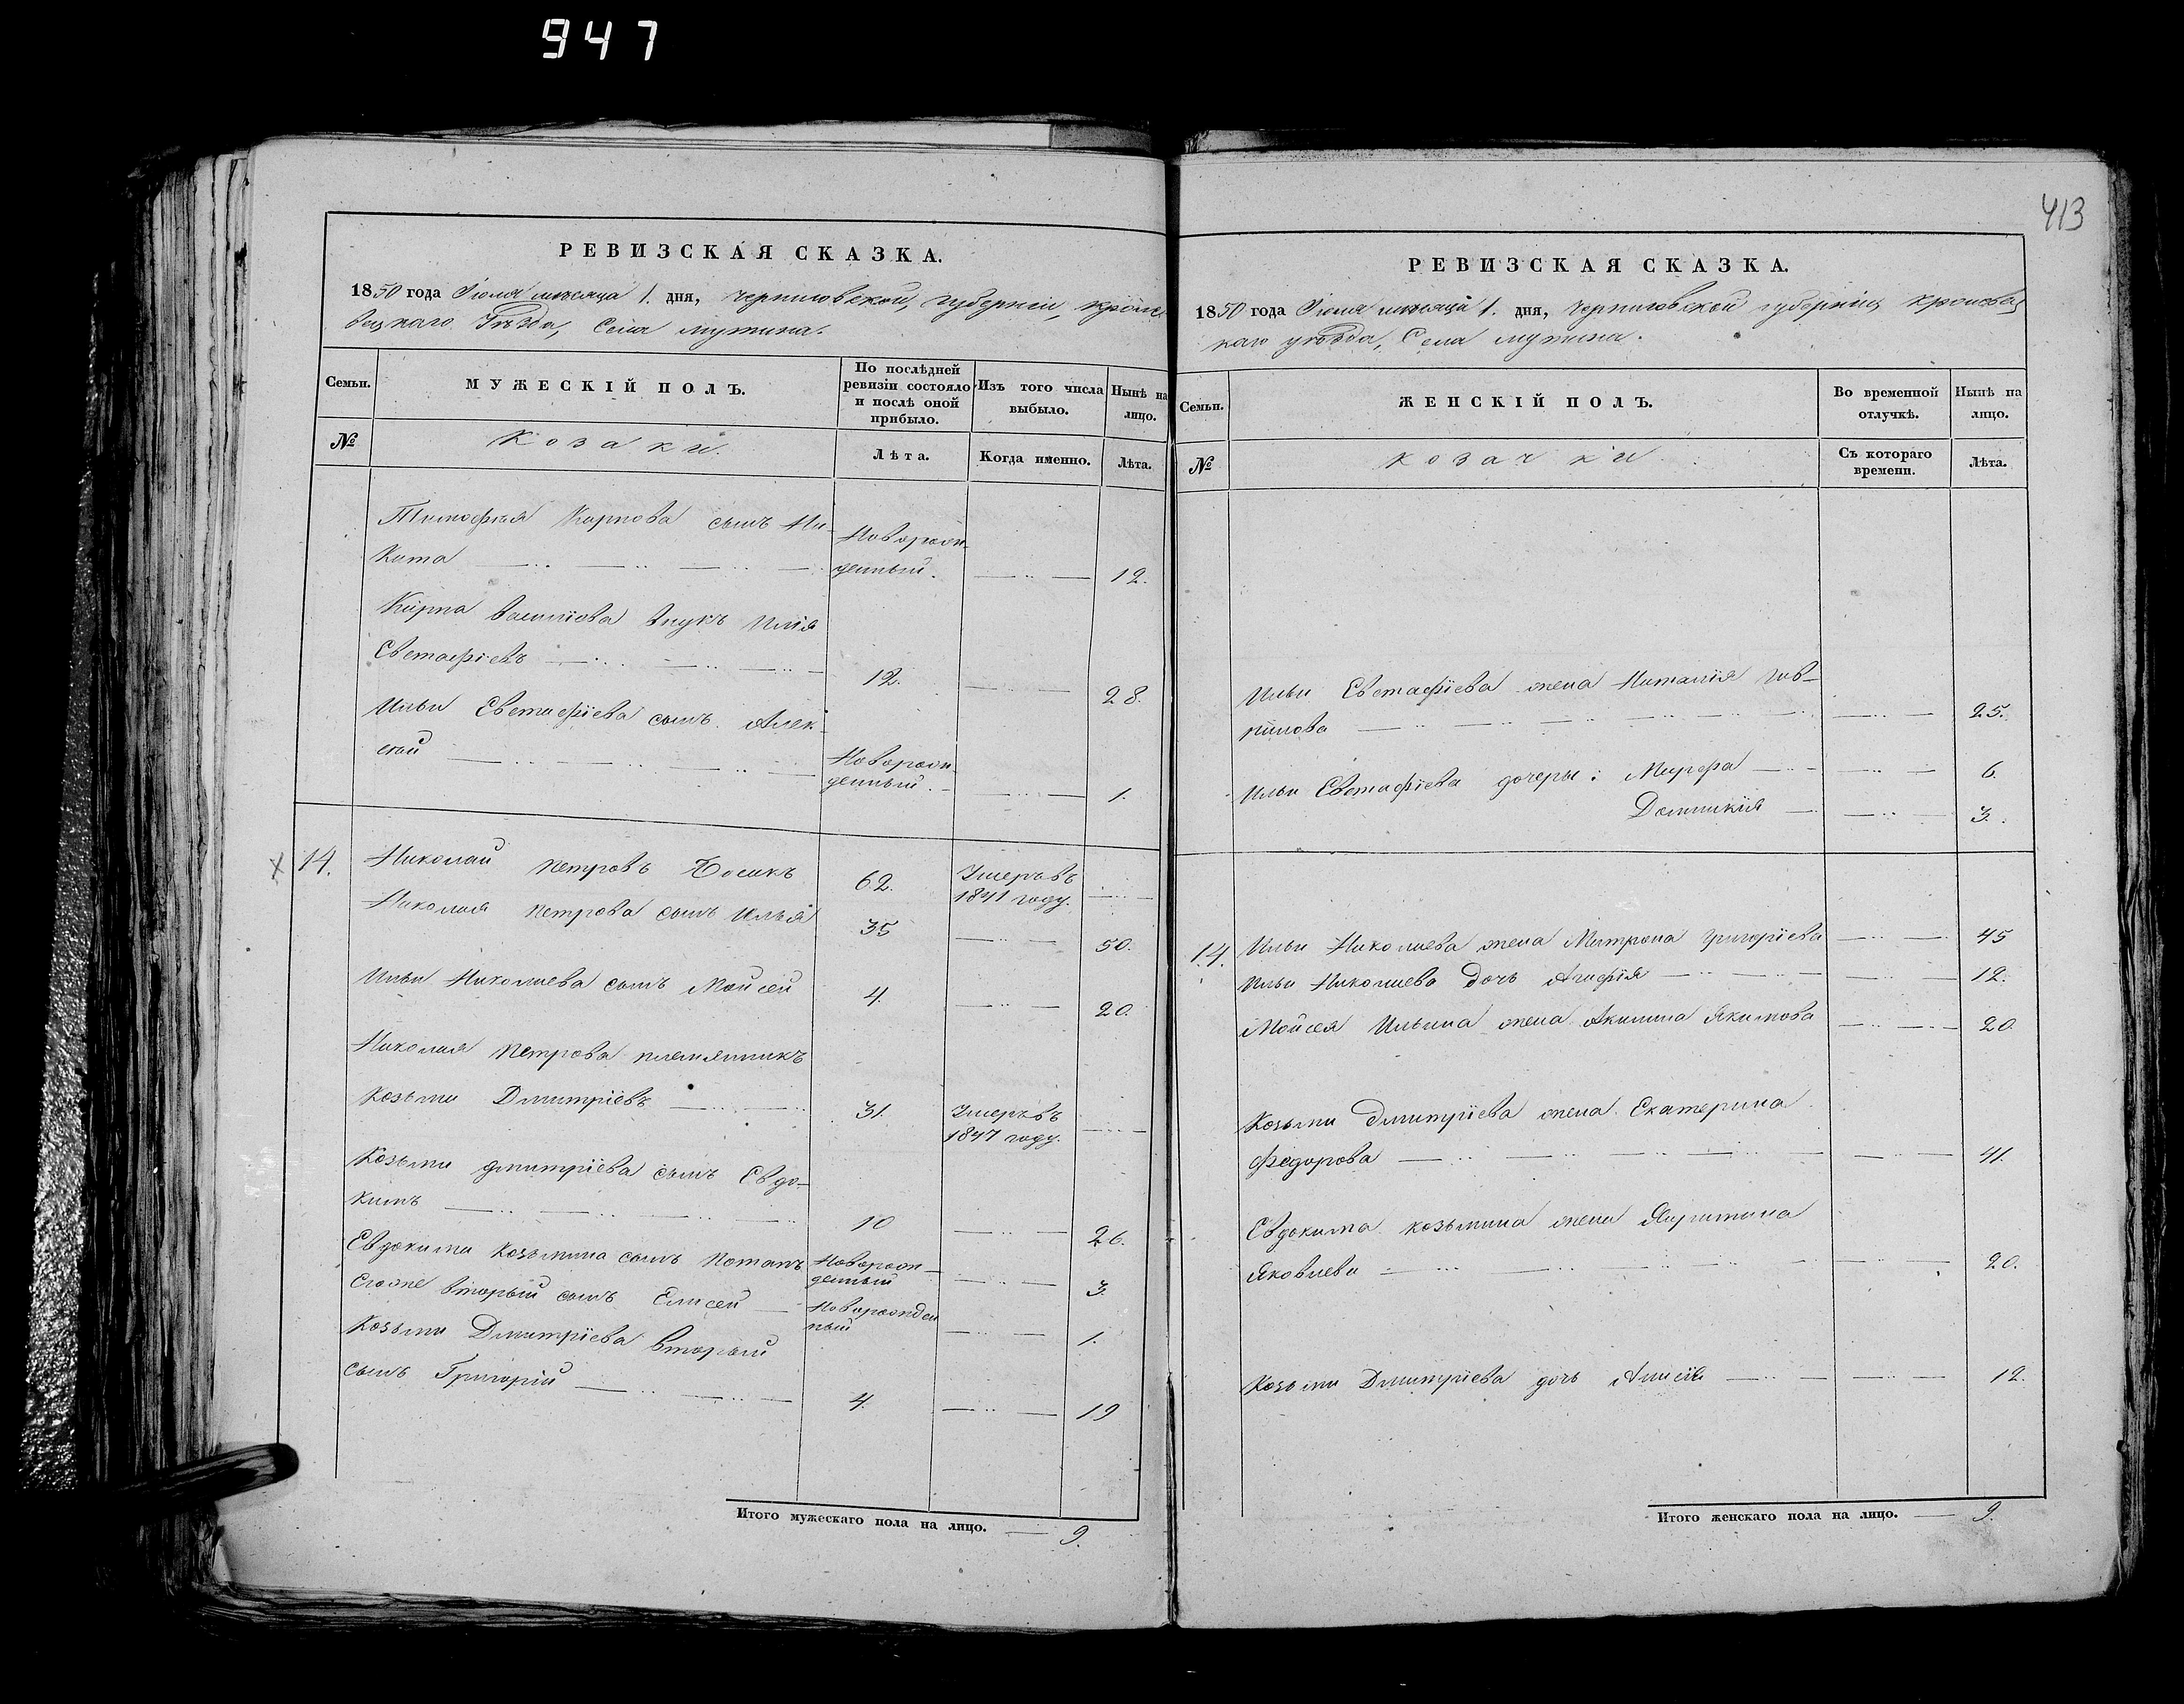 947
413
РЕВИЗСКАЯ СКАЗКА.
1850 года Іюля мѣсяца 1. дня, Черниговской, Губерніи, Кроле-
вецкаго Уѣзда, Села Мутина.
Семьи. МУЖЕСКІЙ ПОЛЪ. По послѣдней ревизіи состояло и послѣ оной прибыло. Изъ того числа выбыло. Нынѣ на лицо.
№ Козаки. Лѣта. Когда именно. Лѣта.
Тимофея Карпова сынъ Ни-
кита Новорож-
денный. 12.
Карпа внукъ Илія
Евстафіевъ 12. 28.
Ильи Евстафіева сынъ Алек-
сѣй Новорож-
денный. 1.
14. Николай Петровъ 62. Умеръ въ
1841 году.
Николая Петрова сынъ Илья 35 50.
Ильи Николаева сынъ Мойсей 4. 20.
Николая Петрова племянникъ
Козьма Дмитріевъ 31. Умеръ въ
1847 году.
Козьмы Дмитріева сынъ Евдо-
кимъ 10 26.
Евдокима Козьмина сынъ Потапъ Новорож-
денный 3.
Егоже вторый сынъ Елисей Новорожден
ный 1.
Козьмы Дмитріева вторый
сынъ Григорій 4. 19
Итого мужескаго пола на лицо. 9.
РЕВИЗСКАЯ СКАЗКА.
1850 года Іюля мѣсяца 1. дня, Черниговской губерніи, Кролевец
каго уѣзда, Села Мутина.
Семьи. ЖЕНСКІЙ ПОЛЪ. Во временной отлучкѣ. Нынѣ на лицо.
№ Козачки Съ котораго времени. Лѣта.
Ильи Евстафіева жена Наталія Гав-
рилова 25.
Ильи Евстафіева дочеры: Марфа 6.
Домникія 3.
14. Ильи Николаева жена Матрона Григоріева 45
Ильи Николаева дочь Агафія 12.
Мойсея Ильина жена Акилина Якимова 20.
Козьмы Дмитріева жена Екатерина
Федорова 41.
Евдокима Козьмина жена
Яковлева 20.
Козьмы Дмитріева дочь 12.
Итого женскаго пола на лицо. 9.